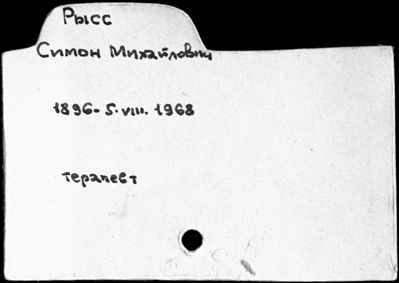 Рысс
Симон Михайлович
1896-5.VIII.1968
терапевт